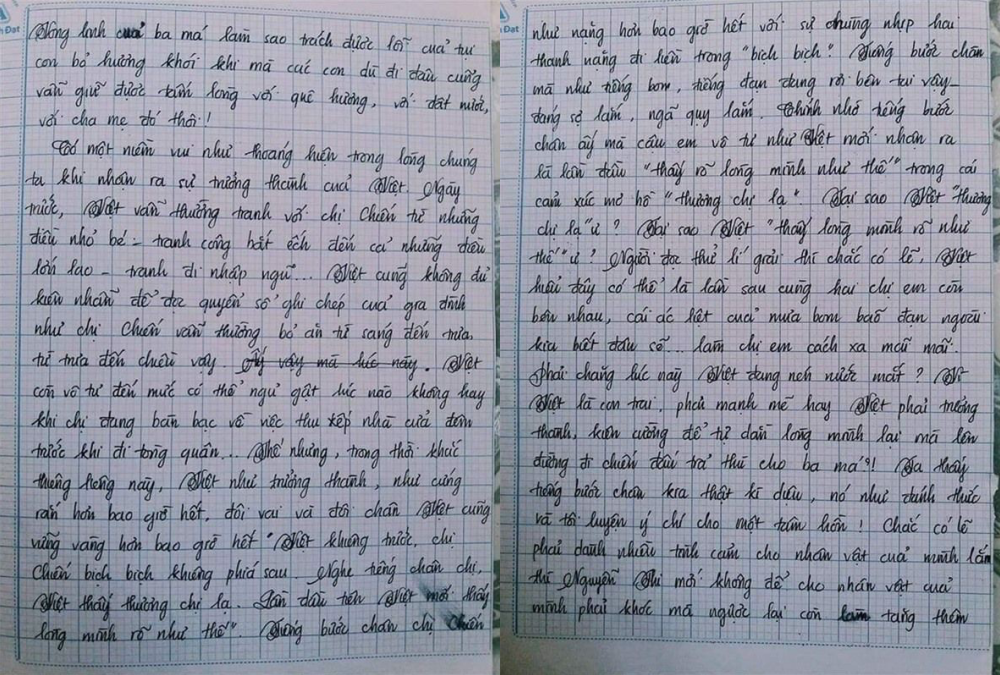 Đạt
Vong linh của ba má làm sao trách được lỗi của tụi
con bỏ hương khói khi mà các con dù đi đâu cũng
vẫn giữ được tấm lòng với quê hương, với đất nước,
với cha mẹ đó thôi!
Có một niềm vui như thoáng hiện trong lòng chúng
ta khi nhận ra sự trưởng thành của Việt. Ngày
trước, Việt vẫn thường tranh với chị Chiến từ những
điều nhỏ bé - tranh công bắt ếch đến cả những điều
lớn lao - tranh đi nhập ngũ... Việt cũng không đủ
kiên nhẫn để đọc quyển sổ ghi chép của gia đình
như chị Chiến vẫn thường bỏ ăn từ sáng đến trưa,
từ trưa đến chiều vậy. Ấy vậy mà lúc này. Việt
còn vô tư đến mức có thể ngủ gật lúc nào không hay
khi chị đang bàn bạc về việc thu xếp nhà cửa đêm
trước khi đi tòng quân... Thế nhưng, trong thời khắc
thiêng liêng này, Việt như trưởng thành, như cứng
rắn hơn bao giờ hết, đôi vai và đôi chân Việt cũng
vững vàng hơn bao giờ hết "Việt khiêng trước, chị
Chiến bịch bịch khiêng phía sau. Nghe tiếng chân chị,
Việt thấy thương chị lạ. Lần đầu tiên Việt mới thấy
lòng mình rõ như thế". Tiếng bước chân chị Chiến
Đạt
như nặng hơn bao giờ hết với sự chững nhịp hai
thanh nặng đi liền trong "bịch bịch". Tiếng bước chân
mà như tiếng bom, tiếng đạn đang rơi bên tai vậy -
đáng sợ lắm, ngã quỵ lắm. Chính nhờ tiếng bước
chân ấy mà cậu em vô tư như Việt mới nhận ra
là lần đầu "thấy rõ lòng mình như thế" trong cái
cảm xúc mơ hồ "thương chị lạ". Tại sao Việt "thương
chị lạ" ư? Tại sao Việt "thấy lòng mình rõ như
thế" ư? Người đọc thử lí giải thì chắc có lẽ, Việt
hiểu đây có thể là lần sau cùng hai chị em còn
bên nhau, cái ác liệt của mưa bom bão đạn ngoài
kia bắt đầu sẽ... làm chị em cách xa mãi mãi.
Phải chăng lúc này Việt đang nén nước mắt? Vì
Việt là con trai, phải mạnh mẽ hay Việt phải trưởng
thành, kiên cường để tự dằn lòng mình lại mà lên
đường đi chiến đấu trả thù cho ba má?! Ta thấy
tiếng bước chân kia thật kì diệu, nó như đánh thức
và tôi luyện ý chí cho một tâm hồn! Chắc có lẽ
phải dành nhiều tình cảm cho nhân vật của mình lắm
thì Nguyễn Thi mới không để cho nhân vật của
mình phải khóc mà ngược lại còn làm tăng thêm